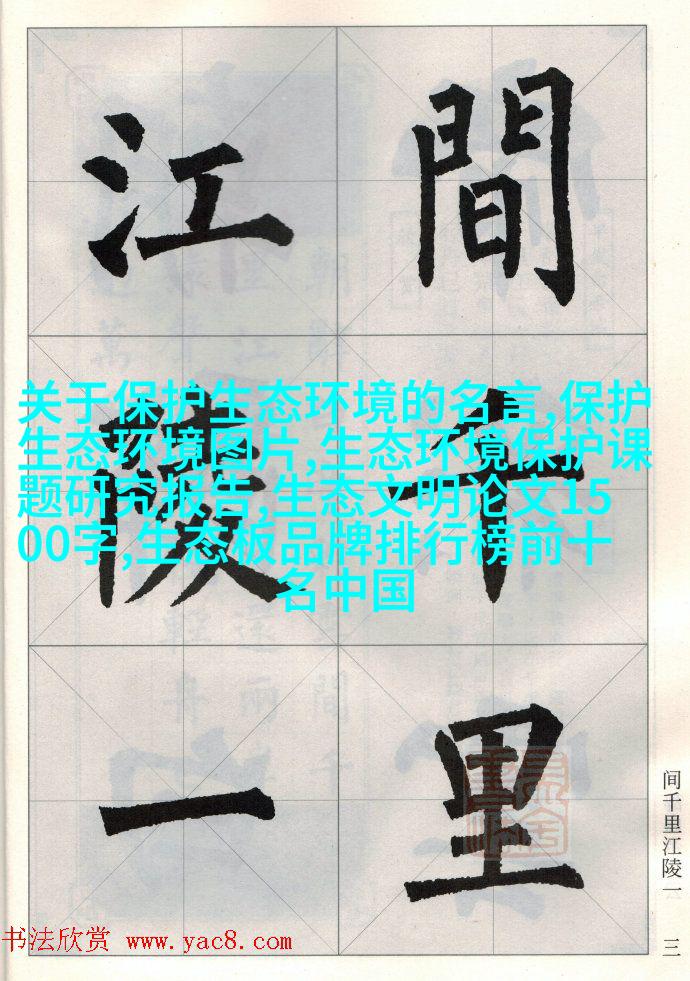 間千里
江陵一
关于保护生态环境的名言,保护
生态环境图片,生态环境保护课
题研究报告,生态文明论文15
00字,生态板品牌排行榜前十
名中国
间千里江陵一
三
书法欣赏 www.yac8.com